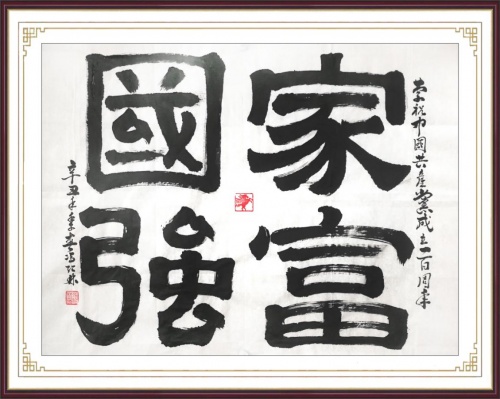 祝中國共產黨成立一百周年
家富
國強
辛丑年季春